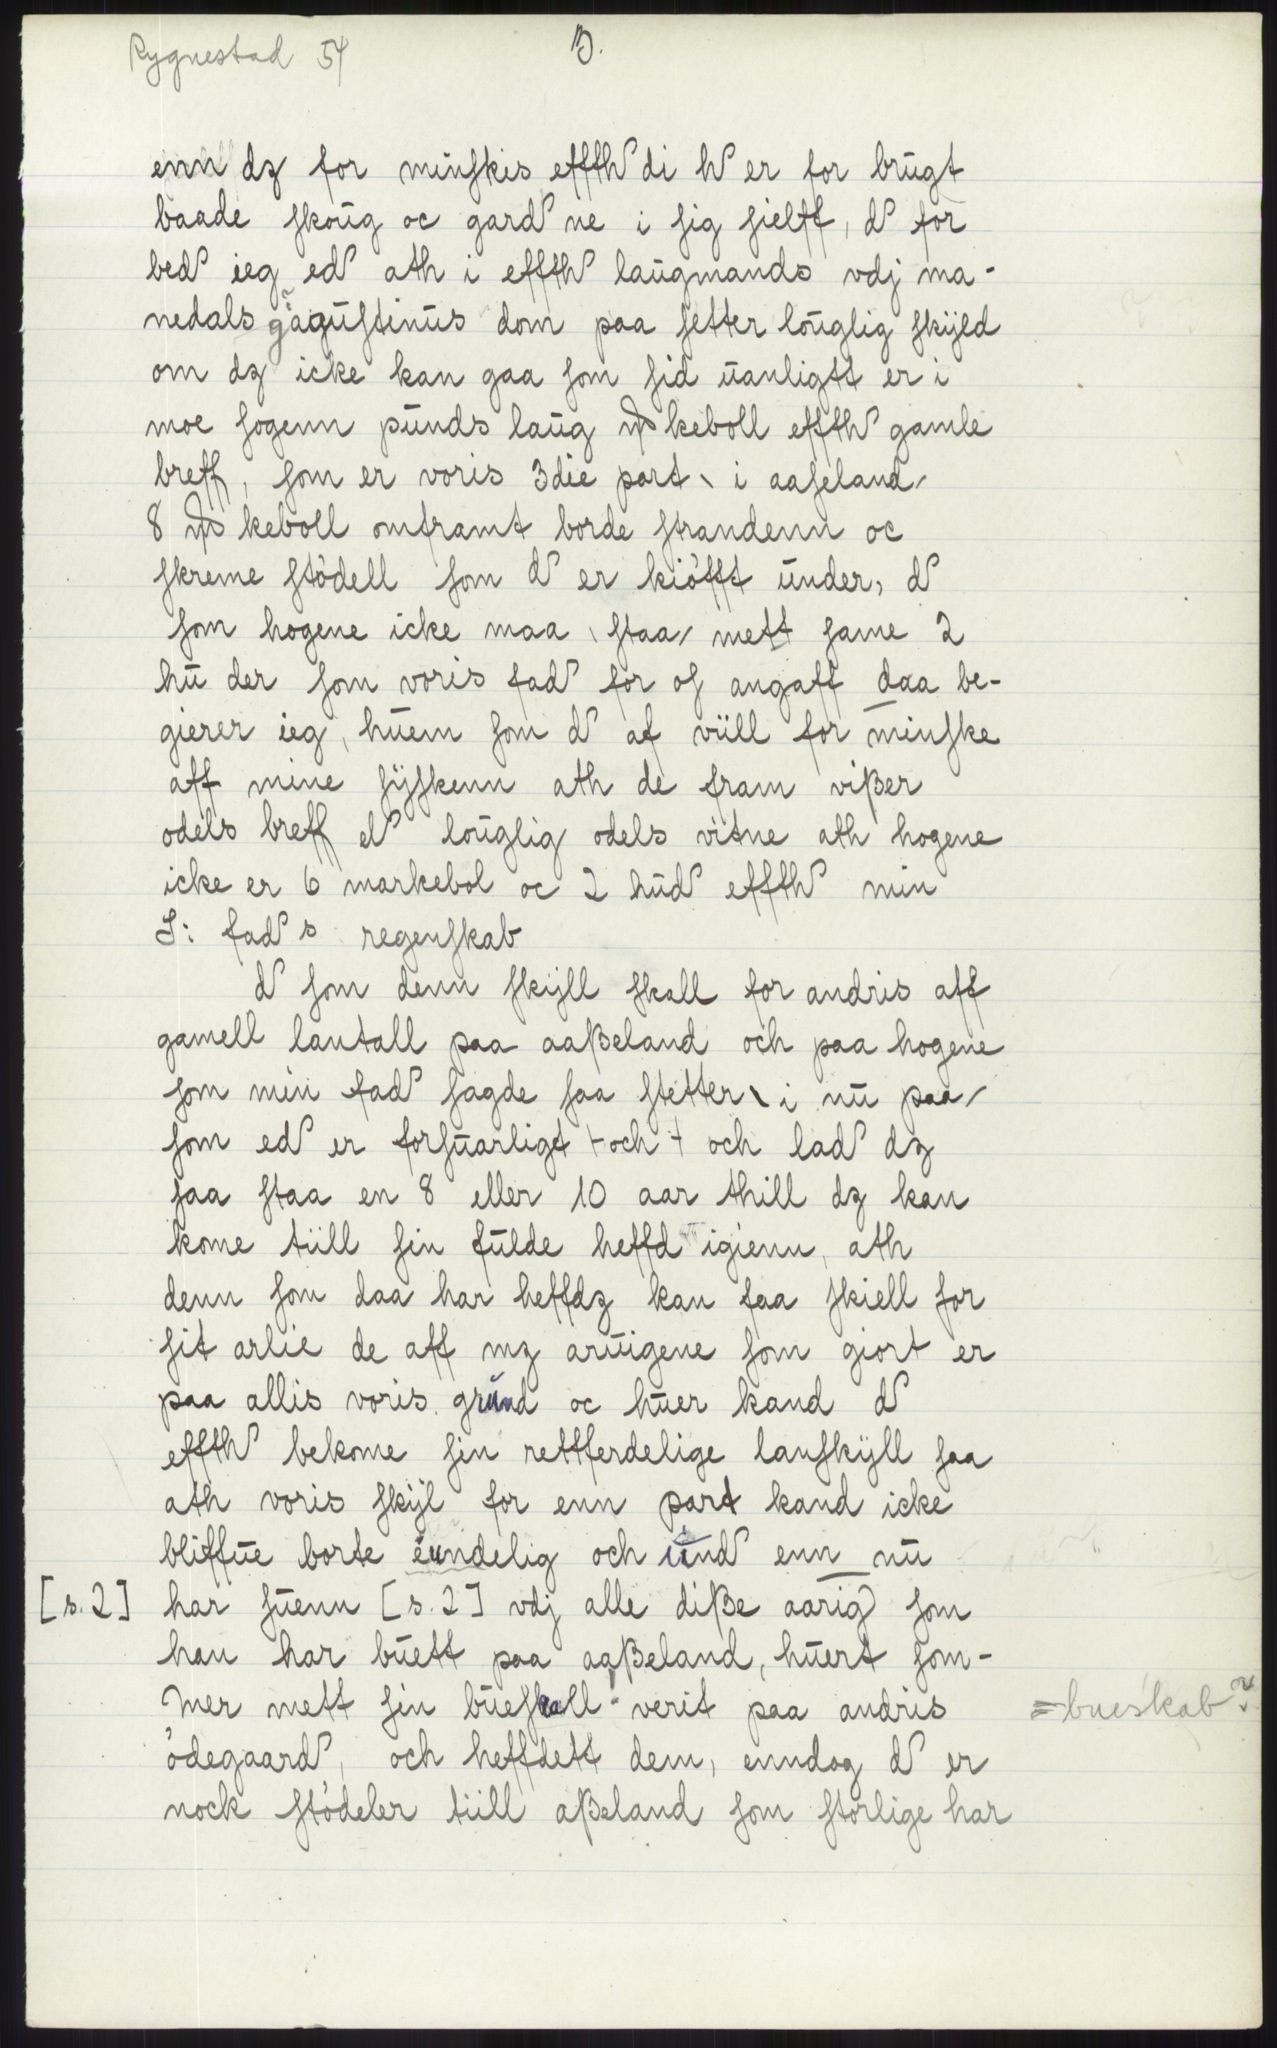 Rygnestad 54
3.
enn dz for minskis effth di h er for brugt
baade skoug oc gard ne i sig sielff, d for
bed ieg ed ath i effth laugmands vdj ma-
nedals gaagustinus dom paa setter louglig skyld
om dz icke kan gaa som sid uanligtt er i
moe sogenn punds laug keboll effth gamle
breff, som er voris 3die part i aaseland
8 keboll omframt borde strandenn oc
skreme stödell som d er kiöfft under, d
som hogene icke maa staa mett same 2
hu der som voris fad for os angaff daa be-
gierer ieg, huem som d af viill for minske
aff mine syskenn ath de fram vißer
odels breff el louglig odels vitne ath hogene
icke er 6 markebol oc 2 hud effth min
S: fad s regenskab
d som denn skyll skall for andris aff
gamell lantall paa aaßeland och paa hogene
som min fad sagde saa stetter i nu paa
som ed er forsuarligt och och lad dz
saa staa en 8 eller 10 aar thill dz kan
kome tiill sin fulde heffd igienn, ath
denn som daa har heffdz kan faa skiell for
sit arlie de aff mz aruigene som giort er
paa allis voris grund oc huer kand d
effth bekome sin rettferdelige lanskyll saa
ath voris skyl for enn part kand icke
bliffue borte eundelig och und enn nu
[s. 2] har suenn [s. 2] vdj alle diße aarig som
han har buett paa aaßeland, huert som-
mer mett sin bueskall verit paa andris =bueskab?
ödegaard, och heffdett dem, enndog d er
nock stödeler tiill aßeland som storlige har